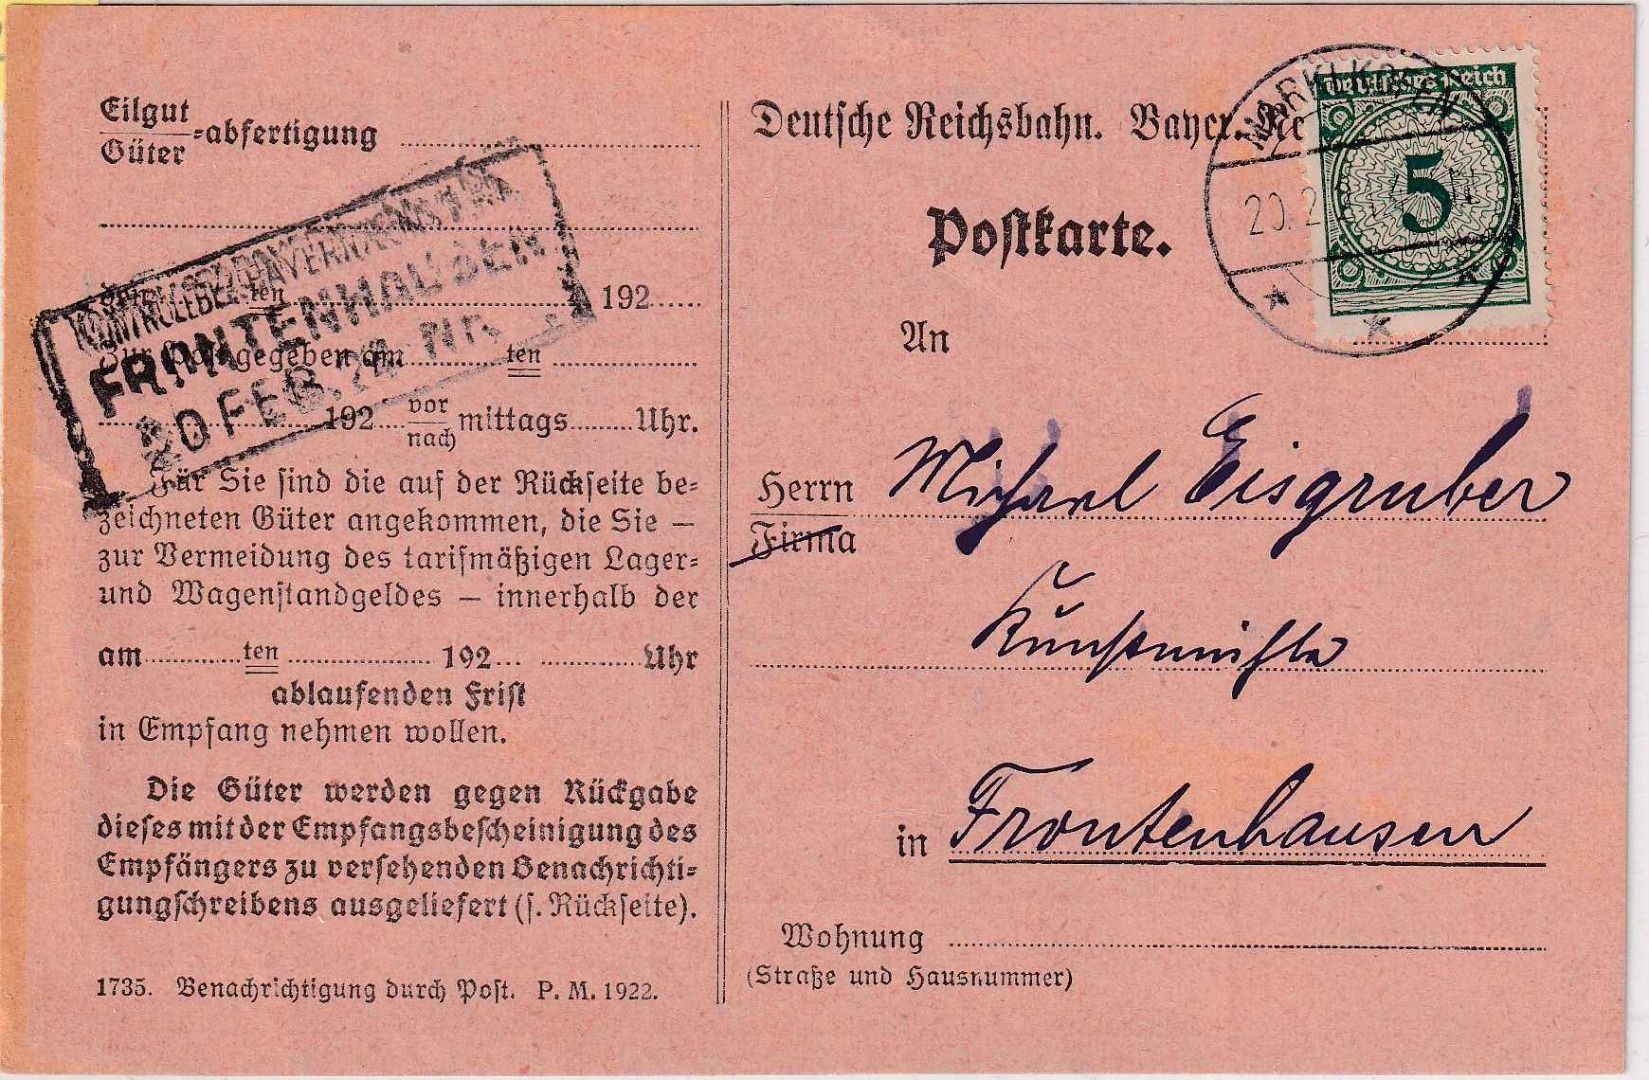 Eilgut
Güter
=abfertigung
FRONTENHAUSEN
20 FEB. 24
ten 192
Zur Post gegeben am ten
192 vor nach mittags Uhr.
Für Sie sind die auf der Rückseite be=
zeichneten Güter angekommen, die Sie —
zur Vermeidung des tarifmäßigen Lager=
und Wagenstandgeldes — innerhalb der
am ten 192 Uhr
ablaufenden Frist
in Empfang nehmen wollen.
Die Güter werden gegen Rückgabe
dieses mit der Empfangsbescheinigung des
Empfängers zu versehenden Benachrichti=
gungschreibens ausgeliefert (s. Rückseite).
1735. Benachrichtigung durch Post. P. M. 1922.
Deutsche Reichsbahn. Bayer.
Postkarte.
MARKLKOFEN
20. 2.
Deutsches Reich
5
An
Herrn Michael Eisgruber
Firma
Kunstmühle
in Frontenhausen
Wohnung
(Straße und Hausnummer)